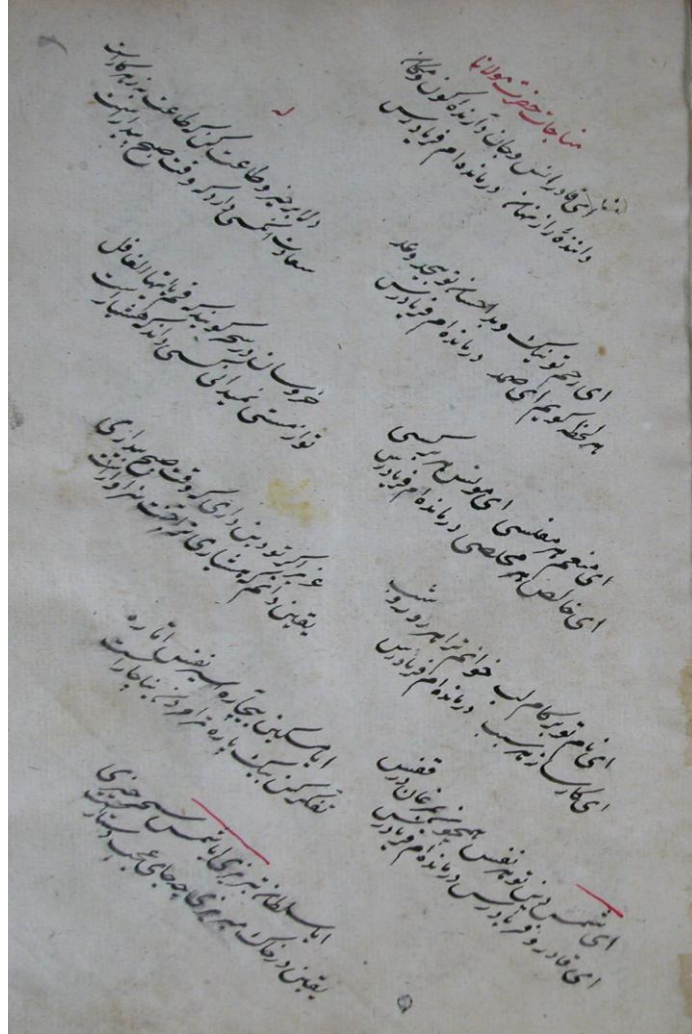 مناجات حضرت مولانا
ای قادر انس و جان دارنده کون و مکان
داننده راز نهان درمانده‌ام فریادرس
ای رحم تو نیک و بد احسان تو بیحد و عد
هر لحظه گویم ای صمد درمانده‌ام فریادرس
ای منعم هر مفلسی ای مونس هر بی‌کسی
ای خالص هر مخلصی درمانده‌ام فریادرس
ای نام تو بر کام لب خوانم ترا هر روز و شب
ای کارساز هر سبب درمانده‌ام فریادرس
ای شمس دین تو هر نفس همچو مرغان در قفس
ای قادر و فریادرس درمانده‌ام فریادرس
له
دلا برخیز و طاعت کن که طاعت به ز هر کارست
سعادت آنکسی دارد که وقت صبح بیدارست
خروسان در سحر گویند که قم یا ایها الغافل
تو از مستی نمیدانی کسی داند که هشیارست
عزیز اگر تو دین داری که وقت صبح بیداری
یقین دانم که هشیاری ترا جنت سزاوارست
ایا مسکین بیچاره اسیر نفس اماره
تفکر کن بیک باره ترا مردن بناچارست
ایا سلطان تبریزی ایا شمس سحرخیزی
یقین در خاک میریزی چه جای عجب دستارست